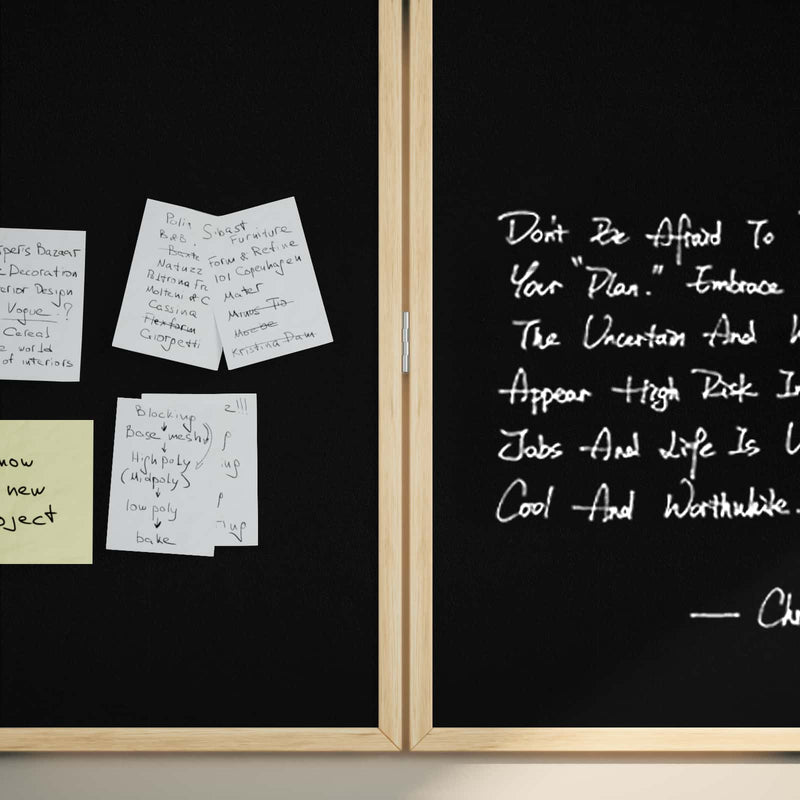 Bazaar
Decoration
Design
Vogue ?
Cereal
world
of interiors
now
new
Polis
B&B
Natuzzi
Poltrona Fr
Molteni & C
Cassina
Flexform
Giorgetti
Sibast
Furniture
Form & Refine
101 Copenhagen
Mater
Minus Tio
Kristina Dam
Blocking
Base mesh
High poly
(Midpoly)
low poly
bake
2!!!
Don't Be Afraid To
Your "Plan." Embrace
The Uncertain And
Appear High Risk In
Jobs And Life Is
Cool And Worthwhile.
—